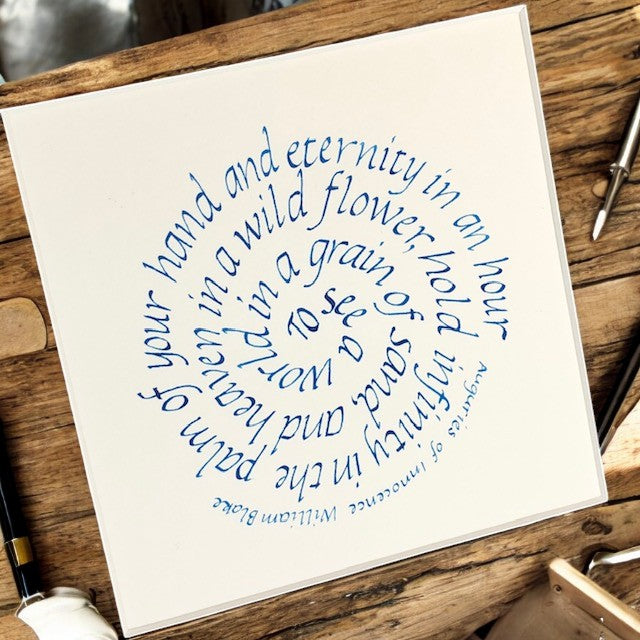 To see a world in a grain of sand, and heaven in a wild flower, hold infinity in the palm of your hand and eternity in an hour
Auguries of Innocence William Blake